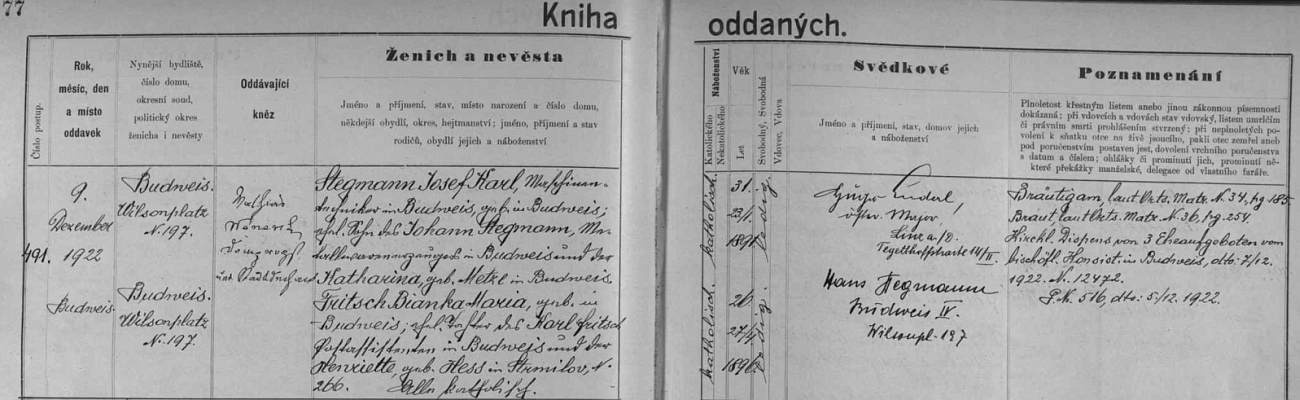 77
Kniha oddaných.
Číslo postup.
Rok,
měsíc, den
a místo
oddavek
Nynější bydliště,
číslo domu,
okresní soud,
politický okres
ženicha i nevěsty
Oddávající
kněz
Ženich a nevěsta
Jméno a příjmení, stav, místo narození a číslo domu,
někdejší obydlí, okres, hejtmanství; jméno, příjmení a stav
rodičů, obydlí jejich a náboženství
491.
9.
Dezember
1922
Budweis.
Budweis.
Wilsonplatz
N. 197.
Budweis.
Wilsonplatz
N. 197.
Mathias
Dompropst
und Stadtdechant
Stegmann Josef Karl, Maschinen-
techniker in Budweis, geb. in Budweis;
ehel. Sohn des Johann Stegmann,
in Budweis und der
Katharina, geb. Metze in Budweis.
Fritsch Bianka Maria, geb. in
Budweis; ehel. Tochter des Karl Fritsch
Postassistenten in Budweis und der
Henriette, geb. Hess in Strmilov, N.
266. Alle katholisch.
Náboženství
Katolického
Nekatolického
Věk
Let
Svobodný, Svobodná
Vdovec, Vdova
katholisch.
31.
23/1.
1891
ledig.
katholisch.
26.
27/4
1896
ledig.
Svědkové
Jméno a příjmení, stav, domov jejich
a náboženství
Hugo
österr. Major,
Linz a/D.
Tegetthoffstraße 14/II.
Hans Stegmann
Budweis IV.
Wilsonpl. 197
Poznamenání
Plnoletost křestným listem anebo jinou zákonnou písemností
dokázaná; při vdovcích a vdovách stav vdovský, listem umrlčím
či právním smrti prohlášením stvrzený; při neplnoletých po-
volení k sňatku otce na živě jsoucího, pakli otec zemřel aneb
pod poručenstvím postaven jest, dovolení vrchního poručenstva
s datum a číslem; ohlášky či prominutí jich, prominutí ně-
které překážky manželské, delegace od vlastního faráře.
Bräutigam, laut Orts. Matr. N. 34, pg 185
Braut, laut Orts. Matr. N. 36, pg. 254.
Kirchl. Dispens von 3 Eheaufgeboten vom
bischöfl. Konsist. in Budweis, dto: 7/12.
1922. N. 12472.
P. N. 516, dto: 5./12. 1922.